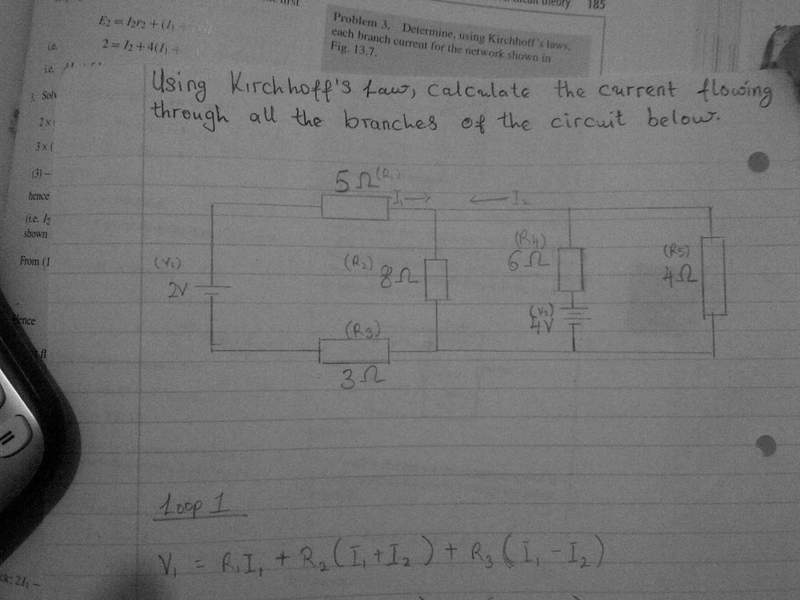 circuit theory 185
E₂ = I₂r₂ + (I₁ +
2 = I₂ + 4(I₁ +
i.e.
i.e.
3. Solv
2 ×
3 × (
(3) –
hence
(i.e. I₂
shown
From (1
Problem 3. Determine, using Kirchhoff's laws,
each branch current for the network shown in
Fig. 13.7.
Using Kirchhoff's Law, calculate the current flowing
through all the branches of the circuit below.
5Ω (R₁)
I₁ →
← I₂
(V₁)
2V
(R₂)
8Ω
(R₃)
3Ω
(R4)
6Ω
(V₂)
4V
(R5)
4Ω
Loop 1
V₁ = R₁I₁ + R₂(I₁+I₂) + R₃(I₁-I₂)
2I₁ –